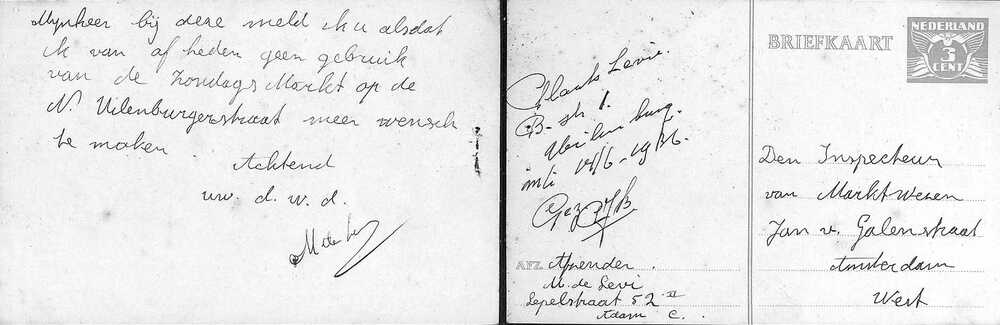 Mynheer bij deze meld ik u alsdat
ik van af heden geen gebruik
van de Zondags Markt op de
N. Uilenburgerstraat meer wensch
te maken.
Achtend
uw. d. w. d.
NEDERLAND
3
CENT
BRIEFKAART
Plaats Levi
Uilenburg.
/6-1936.
Gez
Den Inspecheur
van Markt Wezen
Jan v. Galenstraat
Amsterdam
West
AFZ. Afzender.
M. de Levi
Lepelstraat 52 II
Adam C.